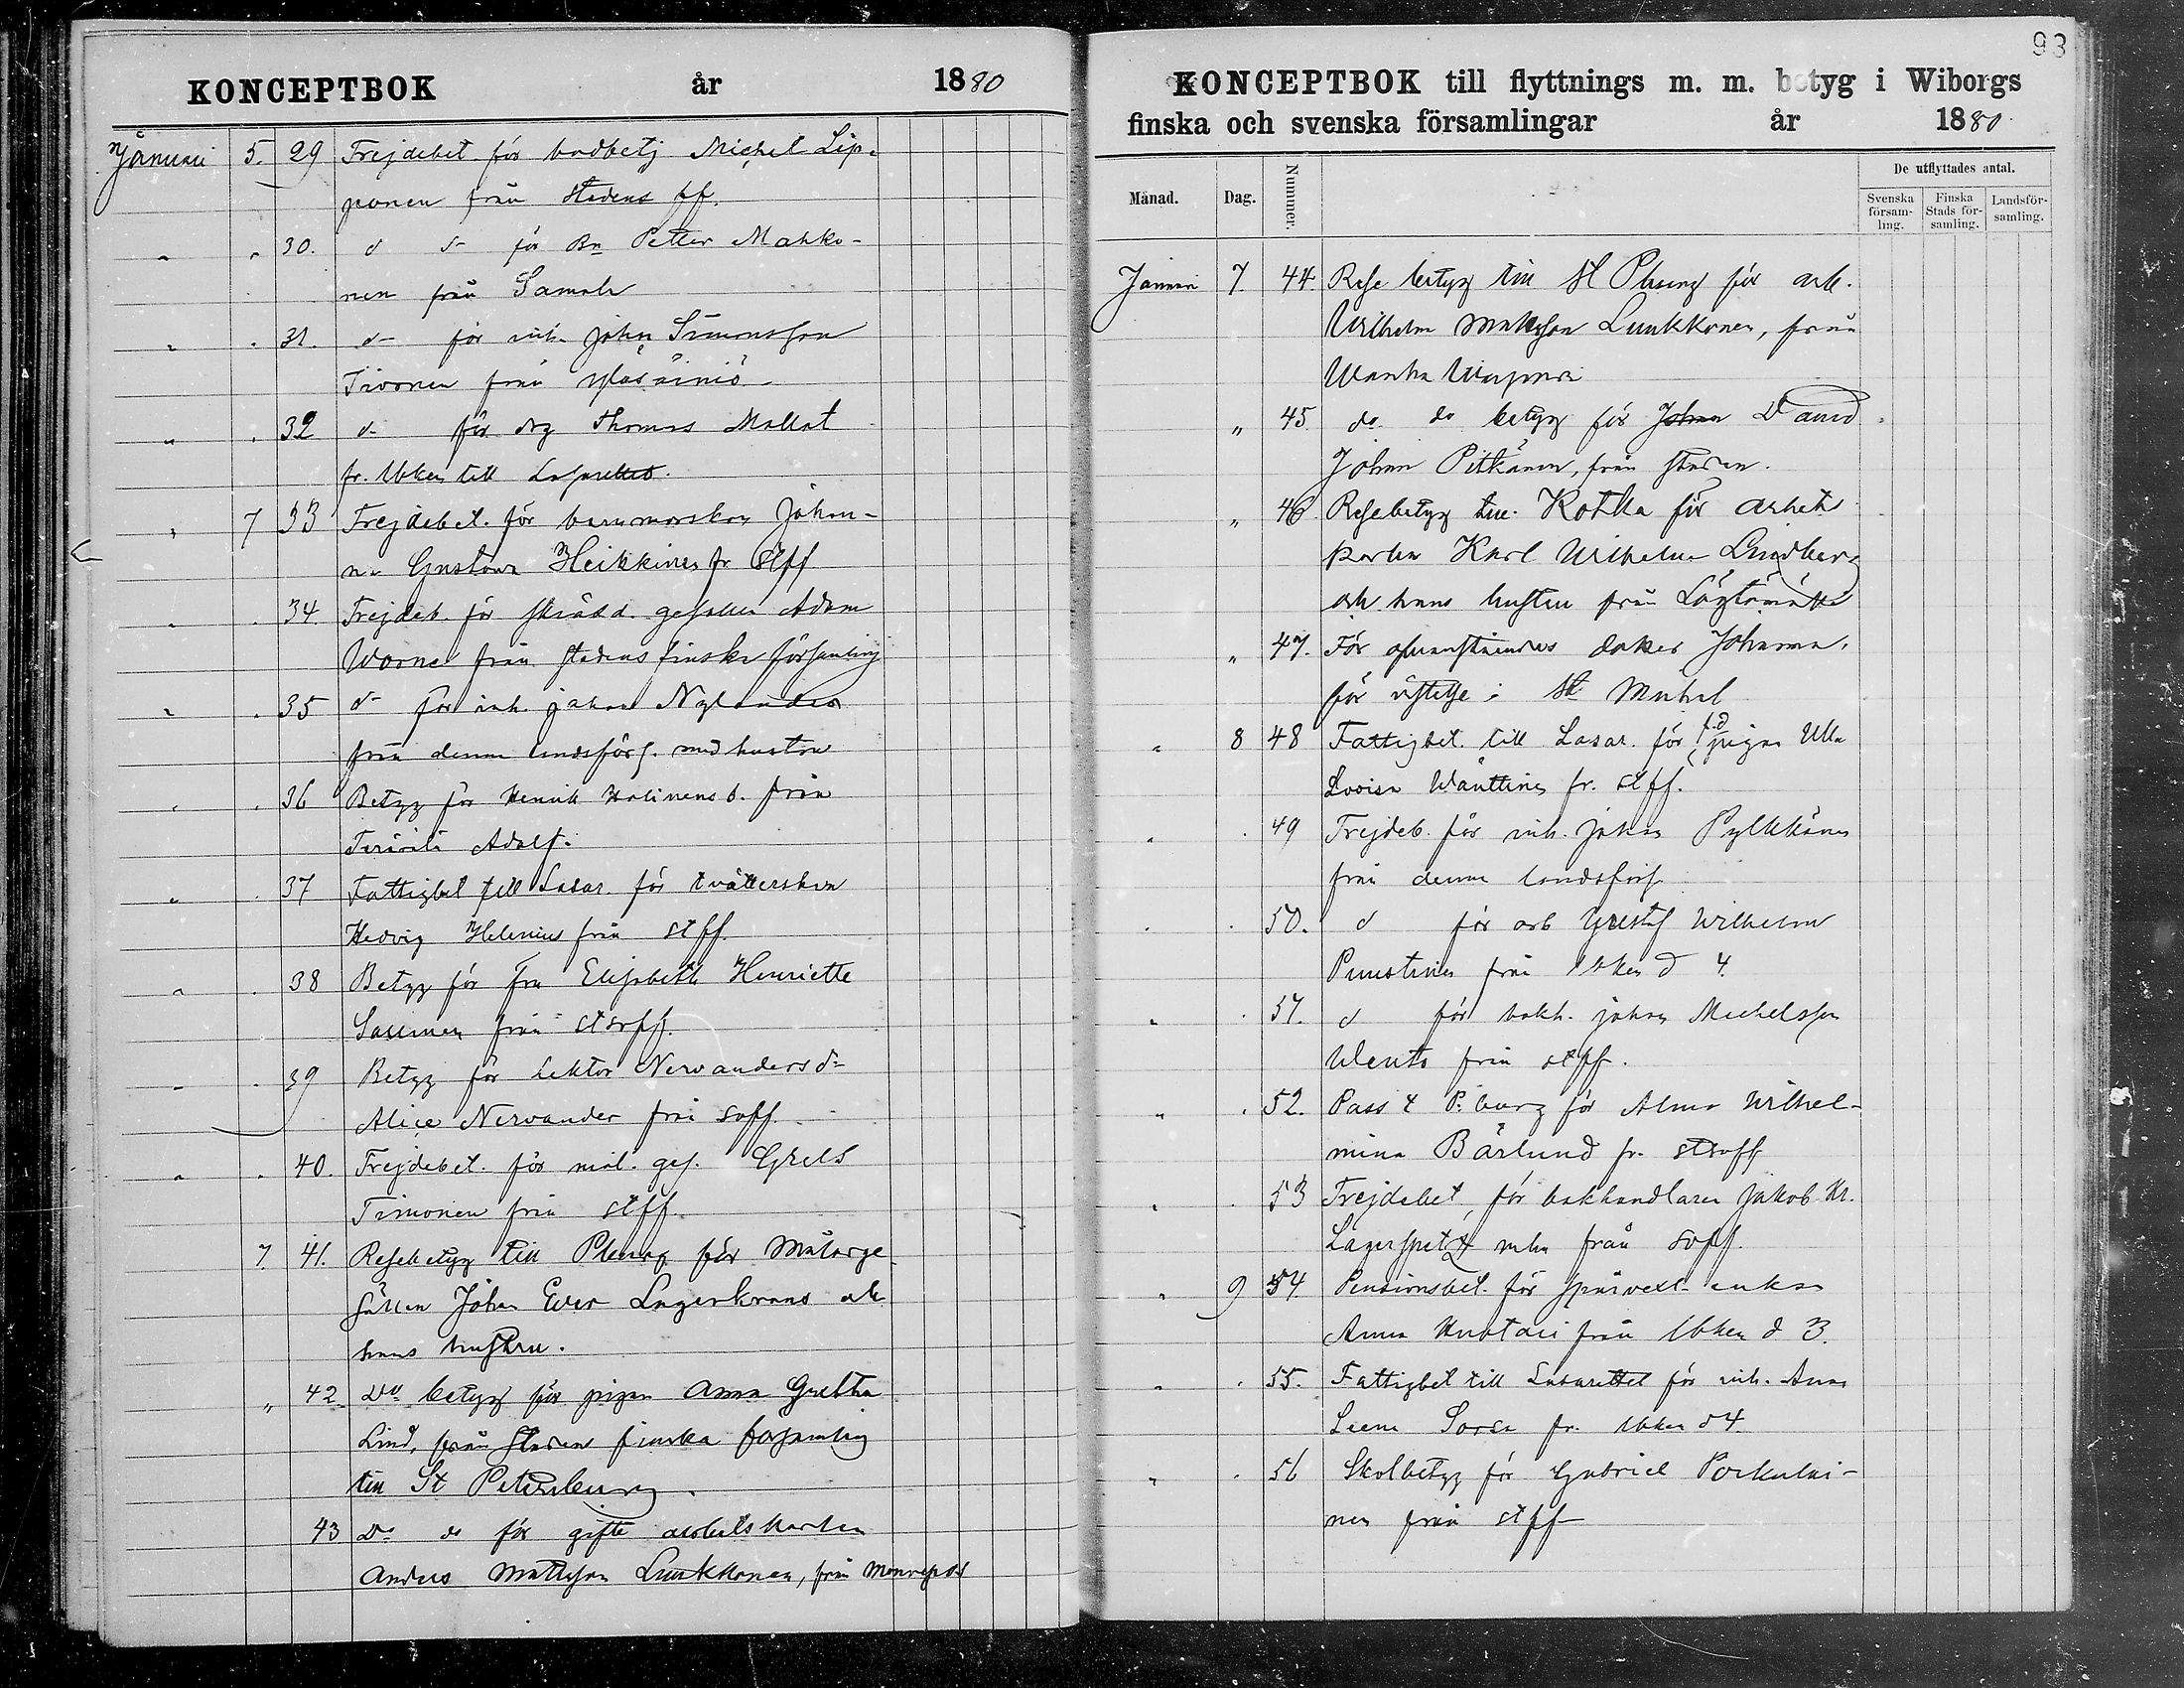 KONCEPTBOK år 1880
Januari 5. 29 Frejdebet för bodbetj Michel Lip-
ponen från stadens ff.
" " 30. d d- för Bn Petter Mahko-
nen från Samola
" . 31. d- för inh. Johan Simonsson
Tivonen från
" . 32 d- för drg Thomas Mallat
fr. Wbken till Lasarettet.
" 7 33 Frejdebet. för barnmorskan Johan-
na Gustava Heikkinen fr Stff
" . 34. Frejdeb. för skrädd. gesällen Adam
Worne från stadens finska församling
" . 35 d- för inh. Johan Nylander
från denna landsförs. med hustru
" . 36 Betyg för Henrik d. från
Adolf.
" . 37 Fattigbet till Lasar. för tvätterskan
Hedvig Helenius från stff.
" . 38 Betyg för fru Elisabeth Henriette
från stsvff.
" . 39 Betyg för Lektor Nervanders dr
Alice Nervander från svff.
" . 40. Frejdebet. för mål. ges. Grels
Timonen från stff.
7. 41. Resebetyg till Pburg för Målarge-
sällen Johan Ever Lagerkrans och
hans hustru.
" 42. Do betyg för pigan Anna Gretha
Lind, från stadens finska församling
till St Petersburg.
43 Do do för gifte arbetskarlen
Anders Mattsson Luukkonen, från Monrepos
93
KONCEPTBOK till flyttnings m. m. betyg i Wiborgs
finska och svenska församlingar år 1880.
Månad. Dag. Nummer. De utflyttades antal.
Svenska församling. Finska Stadsförsamling. Landsförsamling.
Januari 7. 44. Rese betyg till St Pburg för arb.
Wilhelm Mattsson Luukkonen, från
Wanha
" 45. do do betyg för Johan David
Johan Pitkänen, från staden.
" 46. Resebetyg till Kotka för arbets
karlen Karl Wilhelm Lindberg
och hans hustru från
" 47. För dotter Johanna,
för vistelse i St Michel
" 8 48 Fattigbet. till Lasar. för f.d pigan Ulla
Lovisa Wänttinen fr. stff.
" . 49 Frejdeb. för inh. Johan Pylkkänen
från denna landsförs
" . 50. d för arb Gustaf Wilhelm
Puustinen från Wbken d 4.
" . 51. d för bokh. Johan Michelsson
Wento från stff.
" . 52. Pass t P:burg för Alma Wilhel-
mina Bärlund fr. stsvff
" . 53 Frejdebet, för bokhandlaren Jakob W.
Lagerspetz från svff.
" 9 54. Pensionsbet. för spårvext. enkan
Anna från Wbken d 3.
" . 55. Fattigbet till Lasarettet för inh. Anna
Leena Sorsa fr. Wbken d 4.
" . 56 Skolbetyg för Gabriel
nen från stff